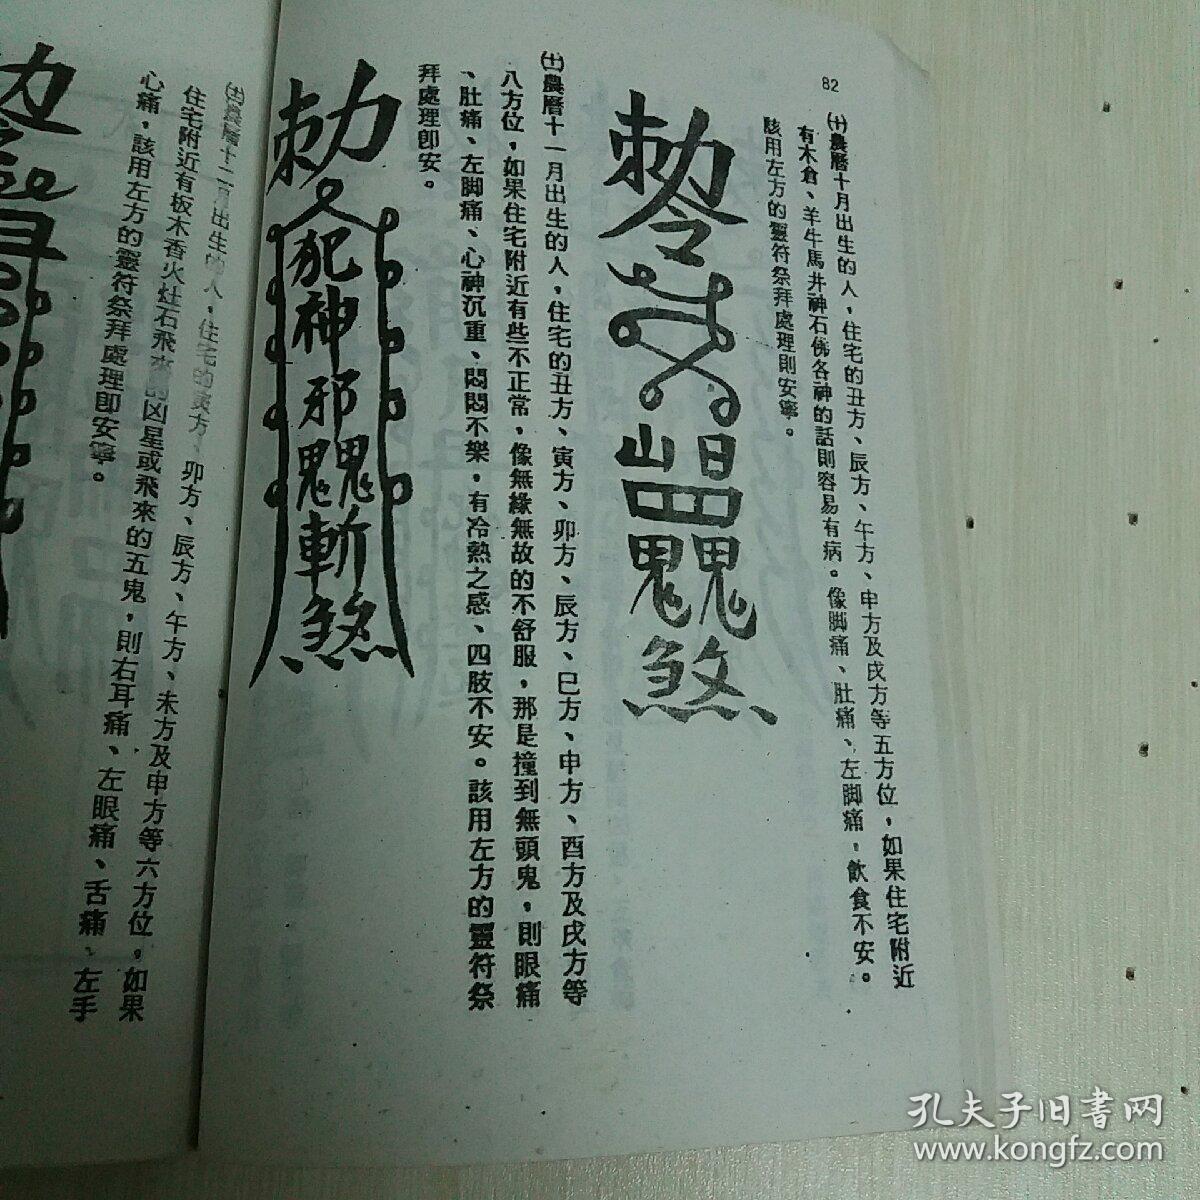 82
㈩農曆十月出生的人，住宅的丑方、辰方、午方、申方及戌方等五方位，如果住宅附近
有木倉、羊牛馬井神石佛各神的話則容易有病。像脚痛、肚痛、左脚痛，飲食不安。
該用左方的靈符祭拜處理則安寧。
勅令
煞
㈩農曆十一月出生的人，住宅的丑方、寅方、卯方、辰方、巳方、申方、酉方及戌方等
八方位，如果住宅附近有些不正常，像無緣無故的不舒服，那是撞到無頭鬼，則眼痛
、肚痛、左脚痛、心神沉重、悶悶不樂，有冷熱之感、四肢不安。該用左方的靈符祭
拜處理卽安。
勅
犯神邪鬼鬼斬煞
農曆十二月出生的人，住宅的寅方、卯方、辰方、午方、未方及申方等六方位。如果
住宅附近有板木香火灶石飛來的凶星或飛來的五鬼，則右耳痛、左眼痛、舌痛、左手
心痛，該用左方的靈符祭拜處理卽安寧。
孔夫子旧书网
www.kongfz.com